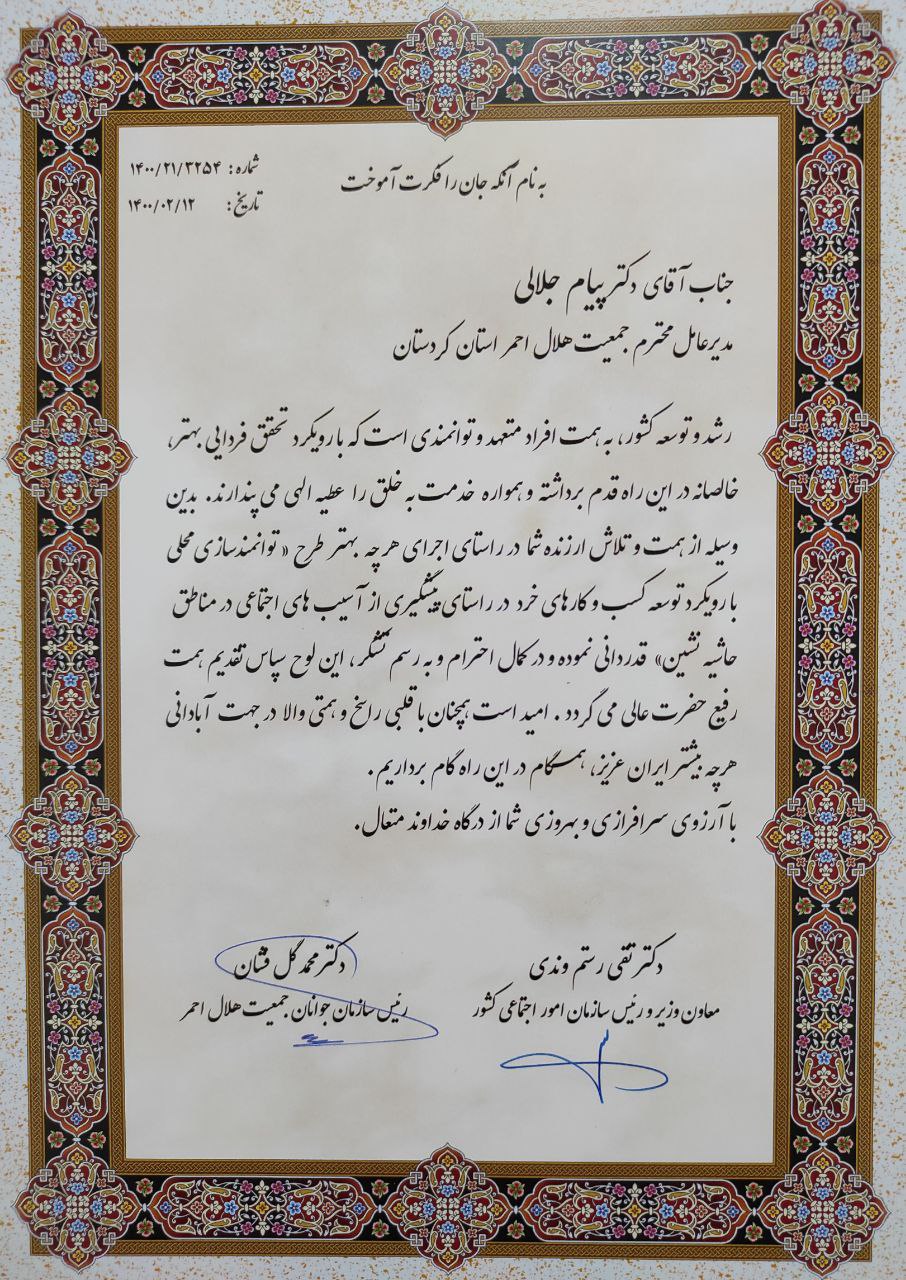 به نام آنکه جان را فکرت آموخت
شماره: ۱۴۰۰/۲۱/۳۲۵۴
تاریخ: ۱۴۰۰/۰۲/۱۲
جناب آقای دکتر پیام جلالی
مدیرعامل محترم جمعیت هلال احمر استان کردستان
رشد و توسعه کشور، به همت افراد متعهد و توانمندی است که با رویکرد تحقق فردایی بهتر،
خالصانه در این راه قدم برداشته و همواره خدمت به خلق را عطیه الهی می پندارند. بدین
وسیله از همت و تلاش ارزنده شما در راستای اجرای هر چه بهتر طرح «توانمندسازی محلی
با رویکرد توسعه کسب و کارهای خرد در راستای پیشگیری از آسیب های اجتماعی در مناطق
حاشیه نشین» قدردانی نموده و در کمال احترام و به رسم تشکر، این لوح سپاس تقدیم همت
رفیع حضرت عالی می گردد. امید است همچنان با قلبی راسخ و همتی والا در جهت آبادانی
هرچه بیشتر ایران عزیز، همگام در این راه گام برداریم.
با آرزوی سرافرازی و بهروزی شما از درگاه خداوند متعال.
دکتر تقی رستم وندی
معاون وزیر و رئیس سازمان امور اجتماعی کشور
دکتر محمد گل فشان
رئیس سازمان جوانان جمعیت هلال احمر